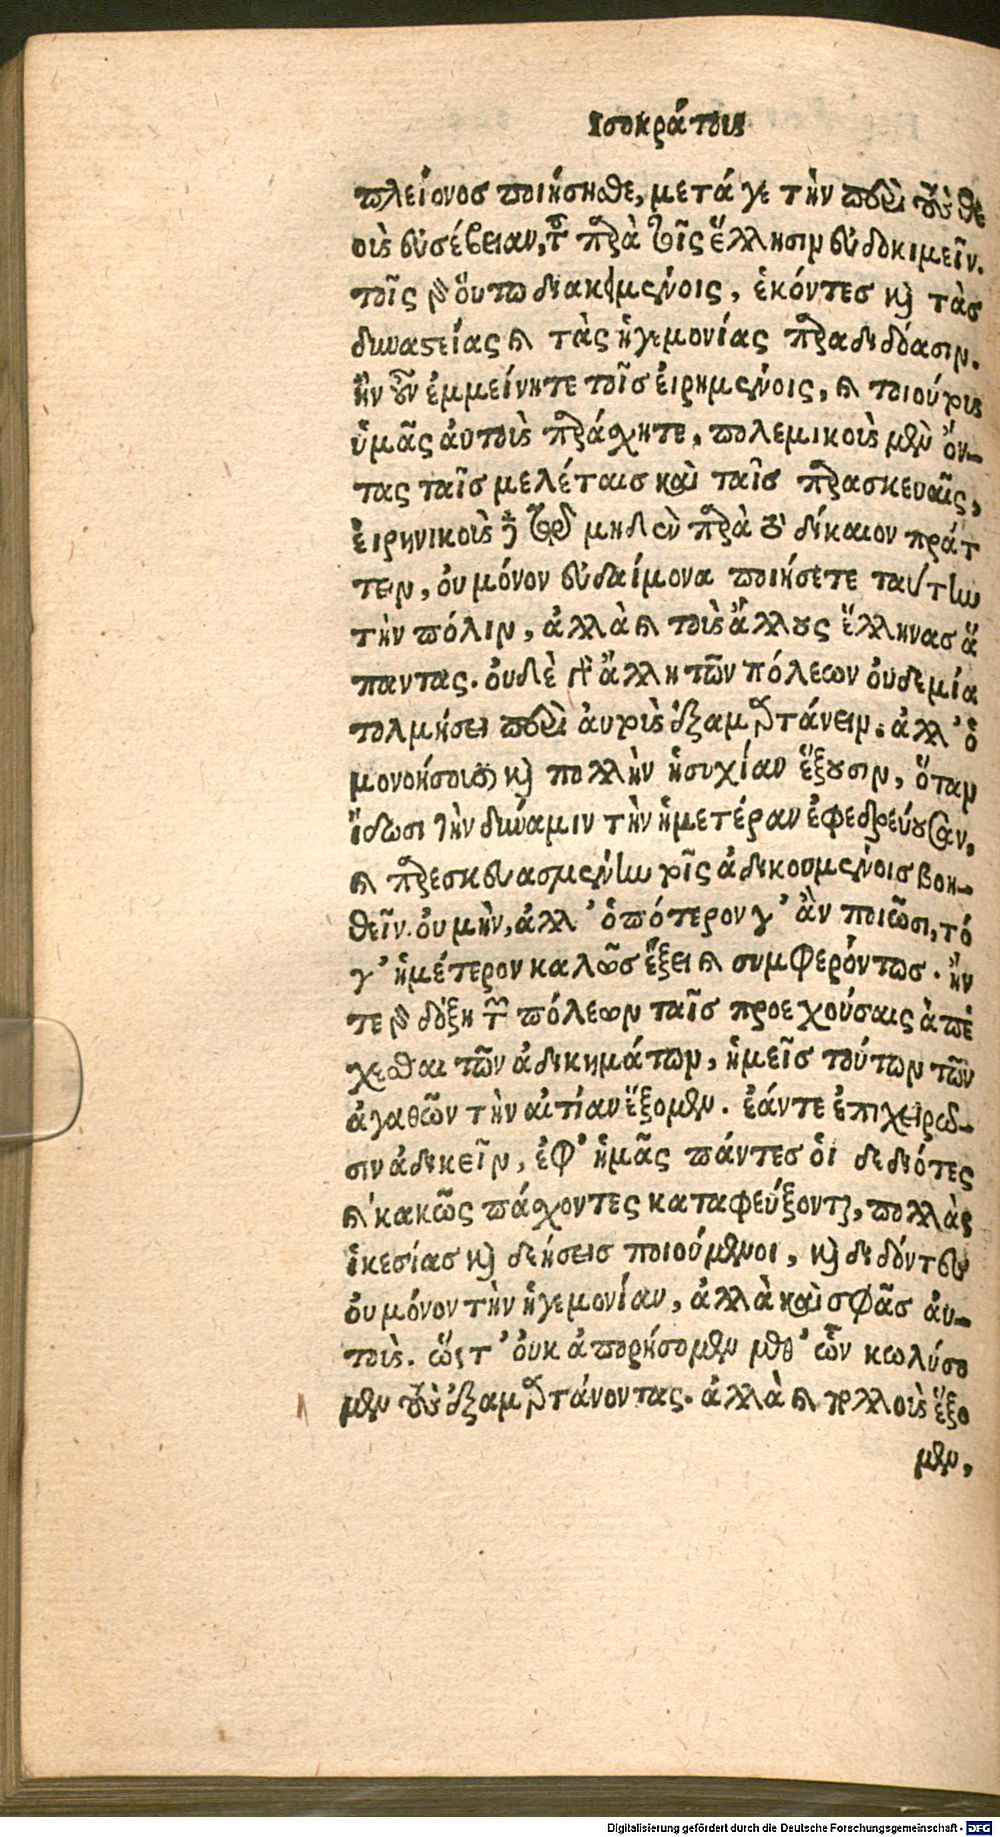 Ισοκράτους
πλείονος ποιήσησθε, μετά γε τὴν περὶ τοὺς θε
οὺς εὐσέβειαν, τοῦ παρὰ τοῖς ἕλλησιν εὐδοκιμεῖν.
τοῖς γὰρ ὅυτω διακειμένοις, ἑκόντες καὶ τὰς
δυναστείας καὶ τὰς ἡγεμονίας παραδιδόασιν.
ἢν οὖν ἐμμείνητε τοῖς ἐιρημένοις, καὶ τοιούτους
ὑμᾶς ἀυτοὺς παράσχητε, πολεμικοὺς μὲν ὄν-
τας ταῖς μελέταις καὶ ταῖς παρασκευαῖς,
ἐιρηνικοὺς δὲ τῷ μηδὲν παρὰ τὸ δίκαιον πράτ
τειν, ὀυ μόνον εὐδαίμονα ποιήσετε ταύτην
τὴν πόλιν, ἀλλὰ καὶ τοὺς ἄλλους ἕλληνας ἅ
παντας. ὀυδὲ γὰρ ἄλλη τῶν πόλεων ὀυδεμία
τολμήσει περὶ ἀυτοὺς ἐξαμαρτάνειν. ἀλλ' ὁ
μονοήσουσι καὶ πολλὴν ἡσυχίαν ἕξουσιν, ὅταν
ἴδωσι τὴν δύναμιν τὴν ἡμετέραν ἐφεδρεύουσαν,
καὶ παρεσκευασμένην τοῖς ἀδικουμένοις βοη-
θεῖν. ὀυ μὴν, ἀλλ' ὁπότερον γ' ἂν ποιῶσι, τό
γ' ἡμέτερον καλῶς ἕξει καὶ συμφερόντως. ἤν
τε γὰρ δόξῃ τῶν πόλεων ταῖς προεχούσαις ἀπέ
χεσθαι τῶν ἀδικημάτων, ἡμεῖς τούτων τῶν
ἀγαθῶν τὴν αἰτίαν ἕξομεν. ἐάντε ἐπιχειρῶ-
σιν ἀδικεῖν, ἐφ' ἡμᾶς πάντες ὁι δεδιότες
καὶ κακῶς πάσχοντες καταφεύξονται, πολλὰς
ἱκεσίας καὶ δεήσεις ποιούμενοι, καὶ διδόντες
ὀυ μόνον τὴν ἡγεμονίαν, ἀλλὰ καὶ σφᾶς ἀυ-
τούς. ὥστ' ὀυκ ἀπορήσομεν μεθ' ὧν κωλύσο
μεν τοὺς ἐξαμαρτάνοντας. ἀλλὰ καὶ πολλοὺς ἕξο
μεν,
Digitalisierung gefördert durch die Deutsche Forschungsgemeinschaft - DFG